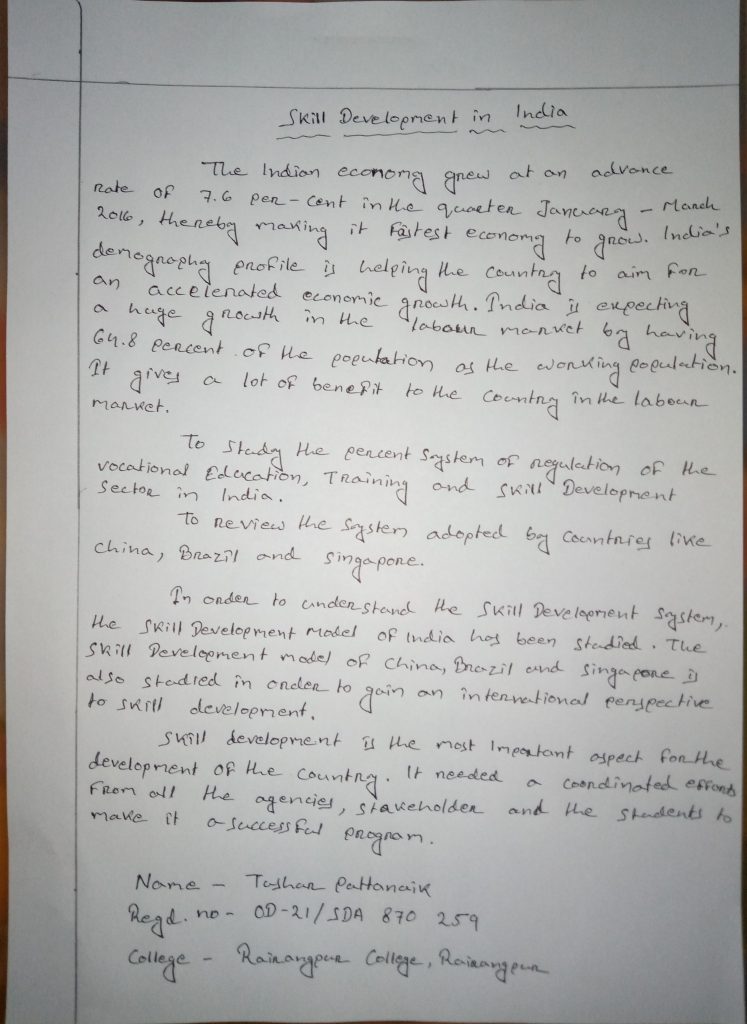 Skill Development in India
The Indian economy grew at an advance
rate of 7.6 per-cent in the quarter January - March
2016, thereby making it fastest economy to grow. India's
demography profile is helping the country to aim for
an accelerated economic growth. India is expecting
a huge growth in the labour market by having
64.8 percent of the population as the working population.
It gives a lot of benefit to the country in the labour
market.
To study the percent system of regulation of the
vocational Education, Training and skill Development
Sector in India.
To review the system adopted by countries like
China, Brazil and singapore.
In order to understand the Skill Development system,
the skill Development Model of India has been studied. The
skill Development model of China, Brazil and singapore is
also studied in order to gain an international perspective
to skill development.
Skill development is the most Important aspect for the
development of the country. It needed a coordinated efforts
From all the agencies, stakeholder and the students to
make it a successful program.
Name - Tushar Pattanaik
Regd. no - OD-21/SDA 870 259
College - Rairangpur College, Rairangpur